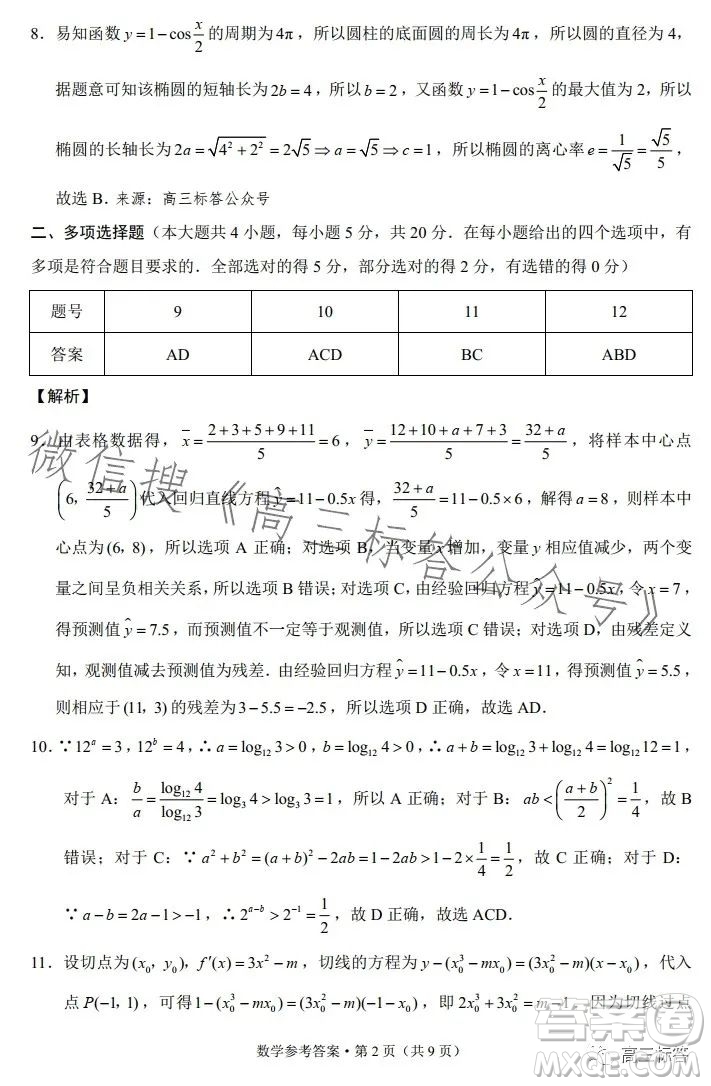 8．易知函数 y=1−cos x/2 的周期为4π，所以圆柱的底面圆的周长为4π，所以圆的直径为 4，
据题意可知该椭圆的短轴长为2b=4，所以b=2，又函数 y=1−cos x/2 的最大值为 2，所以
椭圆的长轴长为 2a=√(4²+2²)=2√5⇒a=√5⇒c=1，所以椭圆的离心率 e=1/√5=√5/5，
故选 B．来源：高三标答公众号
二、多项选择题（本大题共 4 小题，每小题 5 分，共 20 分．在每小题给出的四个选项中，有
多项是符合题目要求的．全部选对的得 5 分，部分选对的得 2 分，有选错的得 0 分）
题号 9 10 11 12
答案 AD ACD BC ABD
【解析】
9．由表格数据得，x̄=(2+3+5+9+11)/5=6，ȳ=(12+10+a+7+3)/5=(32+a)/5，将样本中心点
(6，(32+a)/5)代入回归直线方程ŷ=11−0.5x得，(32+a)/5=11−0.5×6，解得a=8，则样本中
心点为(6, 8)，所以选项 A 正确；对选项 B，当变量x增加，变量 y 相应值减少，两个变
量之间呈负相关关系，所以选项 B 错误；对选项 C，由经验回归方程ŷ=11−0.5x，令x=7，
得预测值ŷ=7.5，而预测值不一定等于观测值，所以选项 C 错误；对选项 D，由残差定义
知，观测值减去预测值为残差．由经验回归方程ŷ=11−0.5x，令x=11，得预测值ŷ=5.5，
则相应于(11, 3)的残差为3−5.5=−2.5，所以选项 D 正确，故选 AD．
10．∵12ᵃ=3，12ᵇ=4，∴a=log₁₂3>0，b=log₁₂4>0，∴a+b=log₁₂3+log₁₂4=log₁₂12=1，
对于 A：b/a=log₁₂4/log₁₂3=log₃4>log₃3=1，所以 A 正确；对于 B：ab<((a+b)/2)²=1/4，故 B
错误；对于 C：∵a²+b²=(a+b)²−2ab=1−2ab>1−2×1/4=1/2，故 C 正确；对于 D：
∵a−b=2a−1>−1，∴2ᵃ⁻ᵇ>2⁻¹=1/2，故 D 正确，故选 ACD．
11．设切点为(x₀，y₀)，f′(x)=3x²−m，切线的方程为 y−(x₀³−mx₀)=(3x₀²−m)(x−x₀)，代入
点 P(−1, 1)，可得1−(x₀³−mx₀)=(3x₀²−m)(−1−x₀)，即 2x₀³+3x₀²=m−1，因为切线过点
数学参考答案·第 2 页（共 9 页）
微信搜《高三标答公众号》
答案圈
MXQE.COM
高三标答